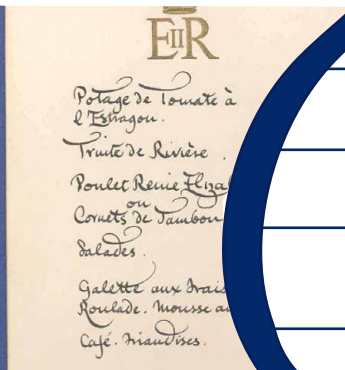 EIIR
Potage de Tomate à
l'Estragon.
Truite de Rivière.
Poulet Reine
ou
Cornets de Jambon
Salades.
Galette aux
Roulade. Mousse
Café. Friandises.